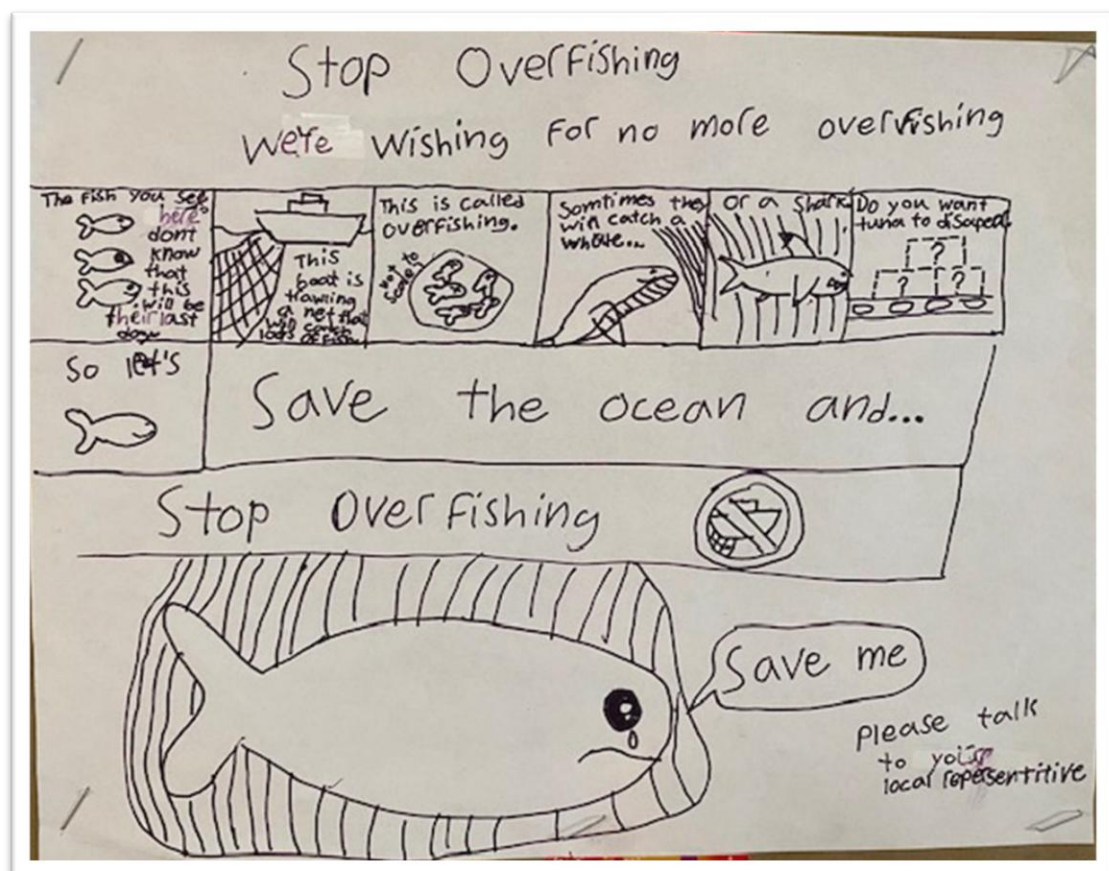 Stop Overfishing
We're Wishing For no more overfishing
The Fish you see
here
dont
know
that
this
will be
their last
day
This
boat is
trawling
a net that
will catch
loads of fish
This is called
overfishing.
Not to
scale
Somtimes they
will catch a
whale...
or a Shark.
Do you want
tuna to disapear
?
? ?
So let's
Save the ocean and...
Stop Overfishing
Save me
please talk
to your
local repersentitive